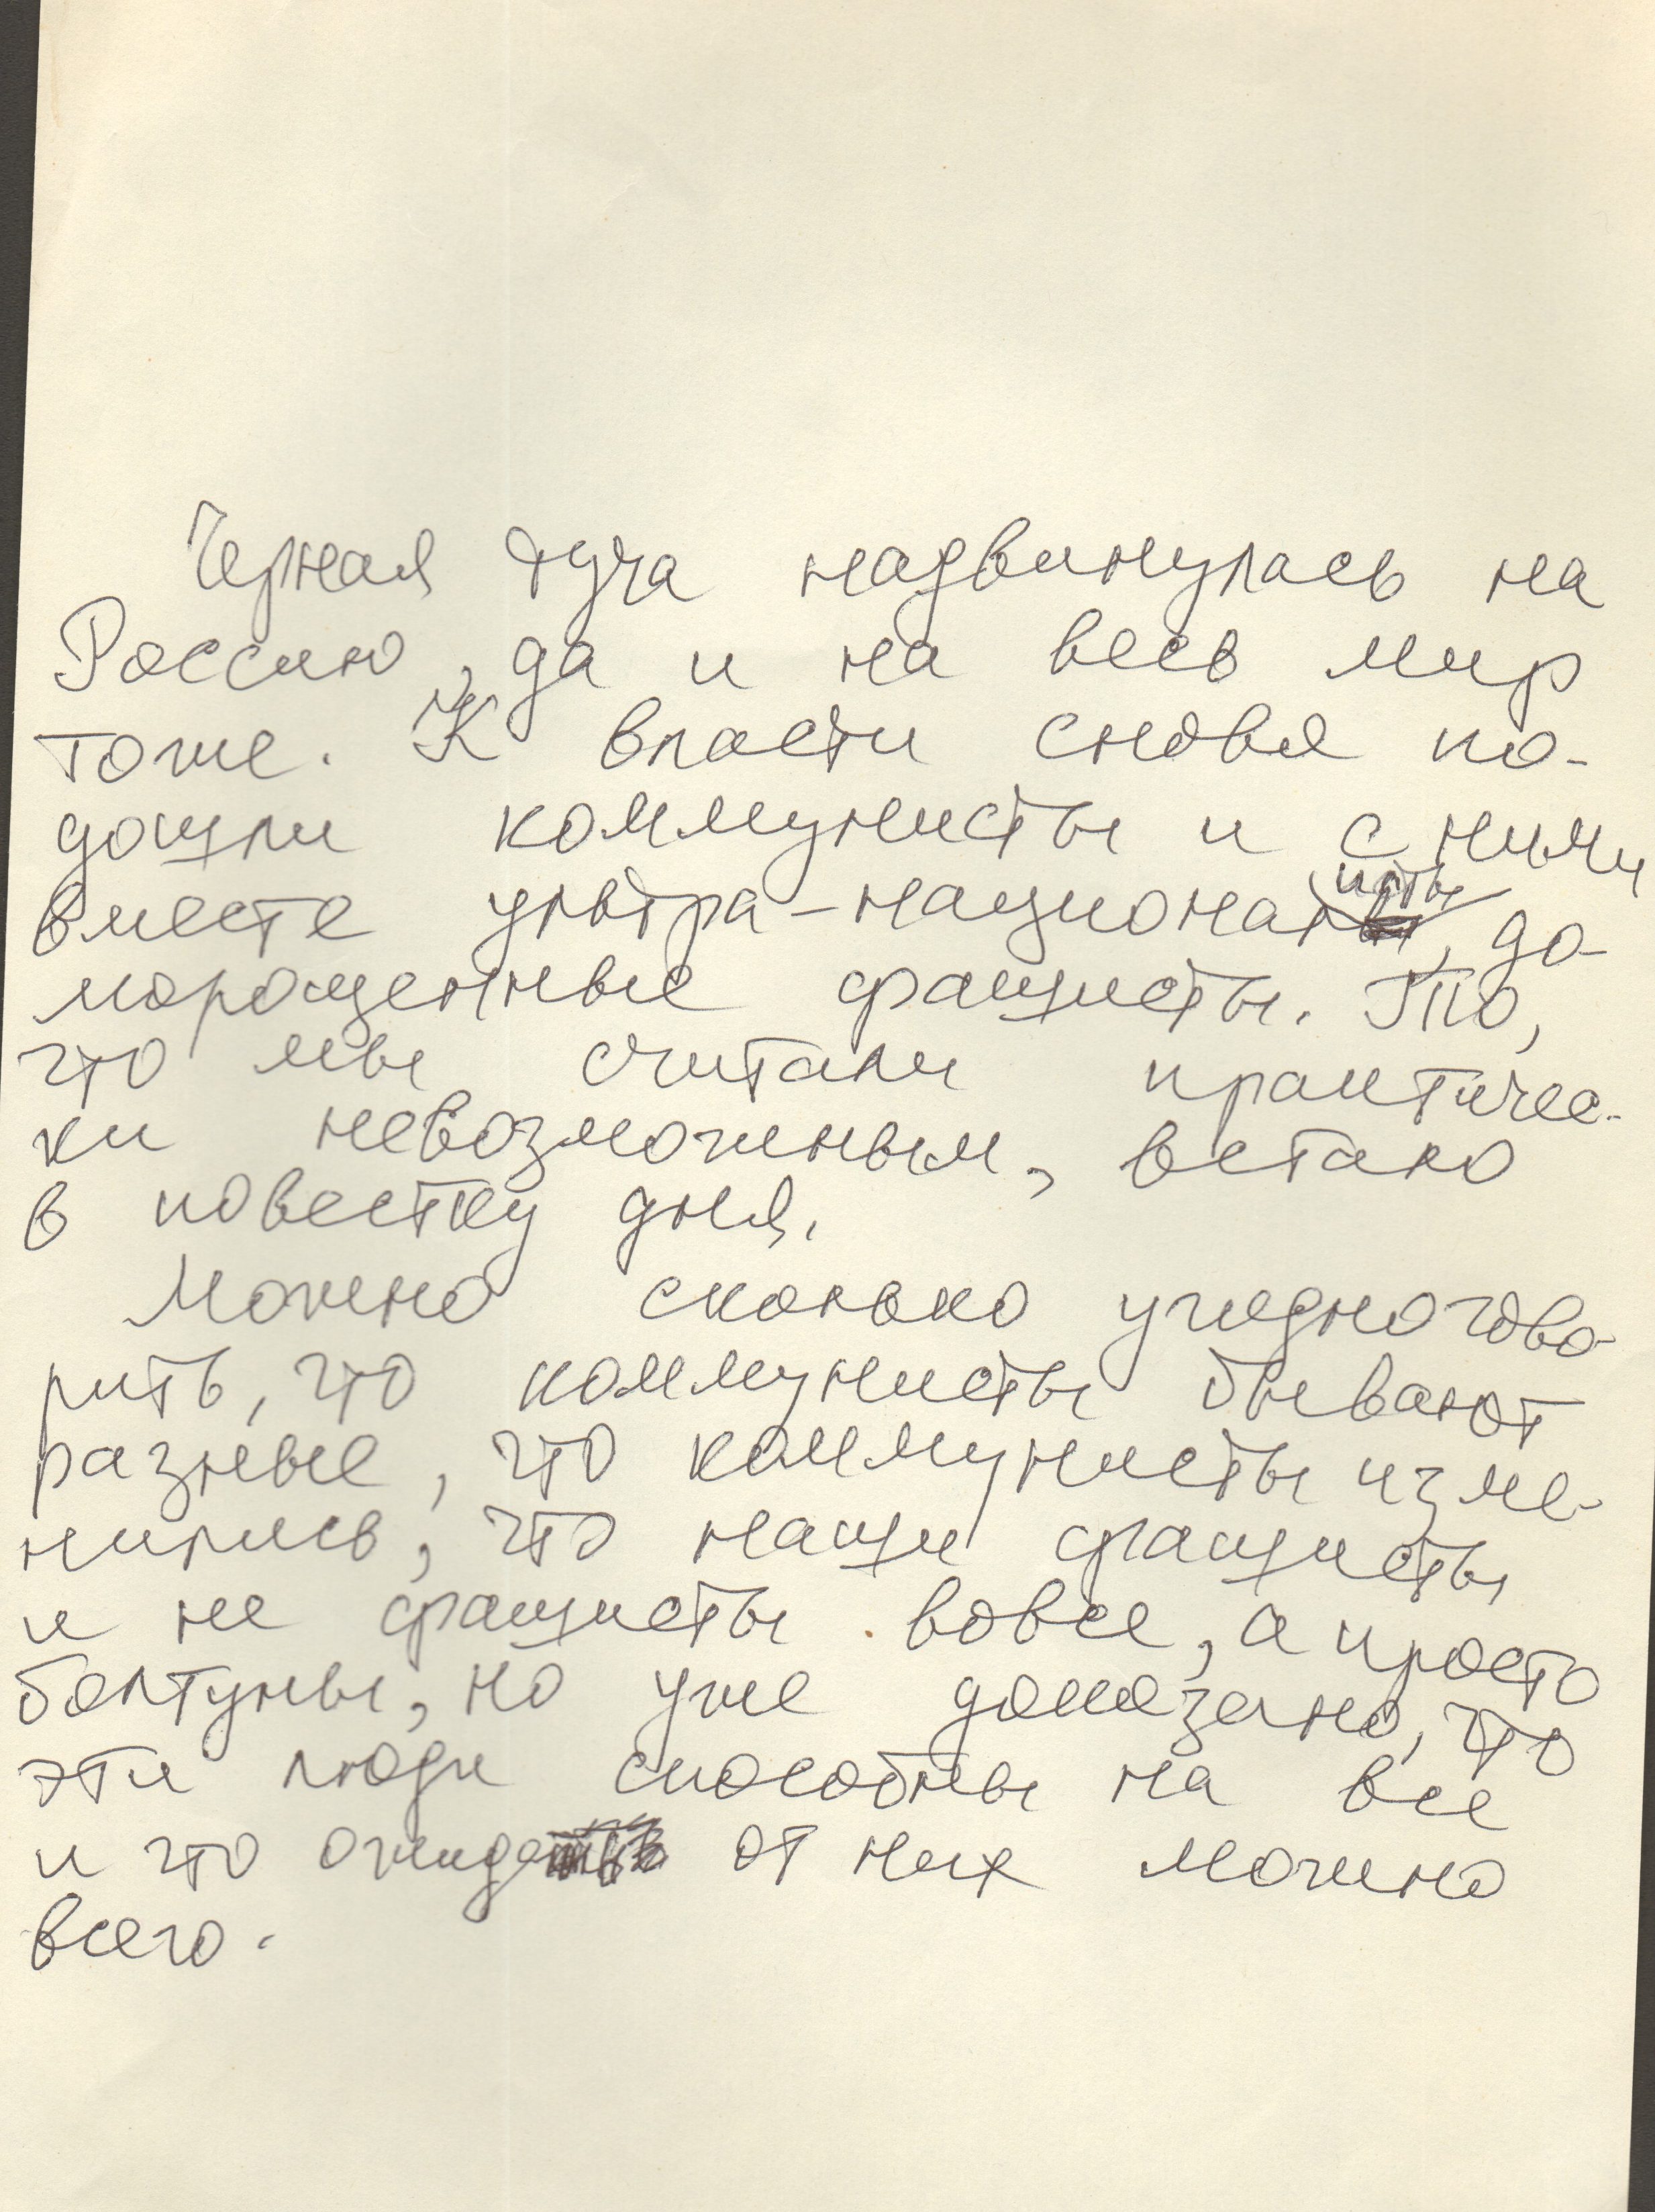 Черная туча надвинулась на
Россию, да и на весь мир
тоже. К власти снова по-
дошли коммунисты и с ними
вместе ультра-националисты, до-
морощенные фашисты. То,
что мы считали практичес-
ки невозможным, встало
в повестку дня.
Можно сколько угодно гово-
рить, что коммунисты бывают
разные, что коммунисты изме-
нились, что наши фашисты
и не фашисты вовсе, а просто
болтуны, но уже доказано, что
эти люди способны на все
и что ожидать от них можно
всего.